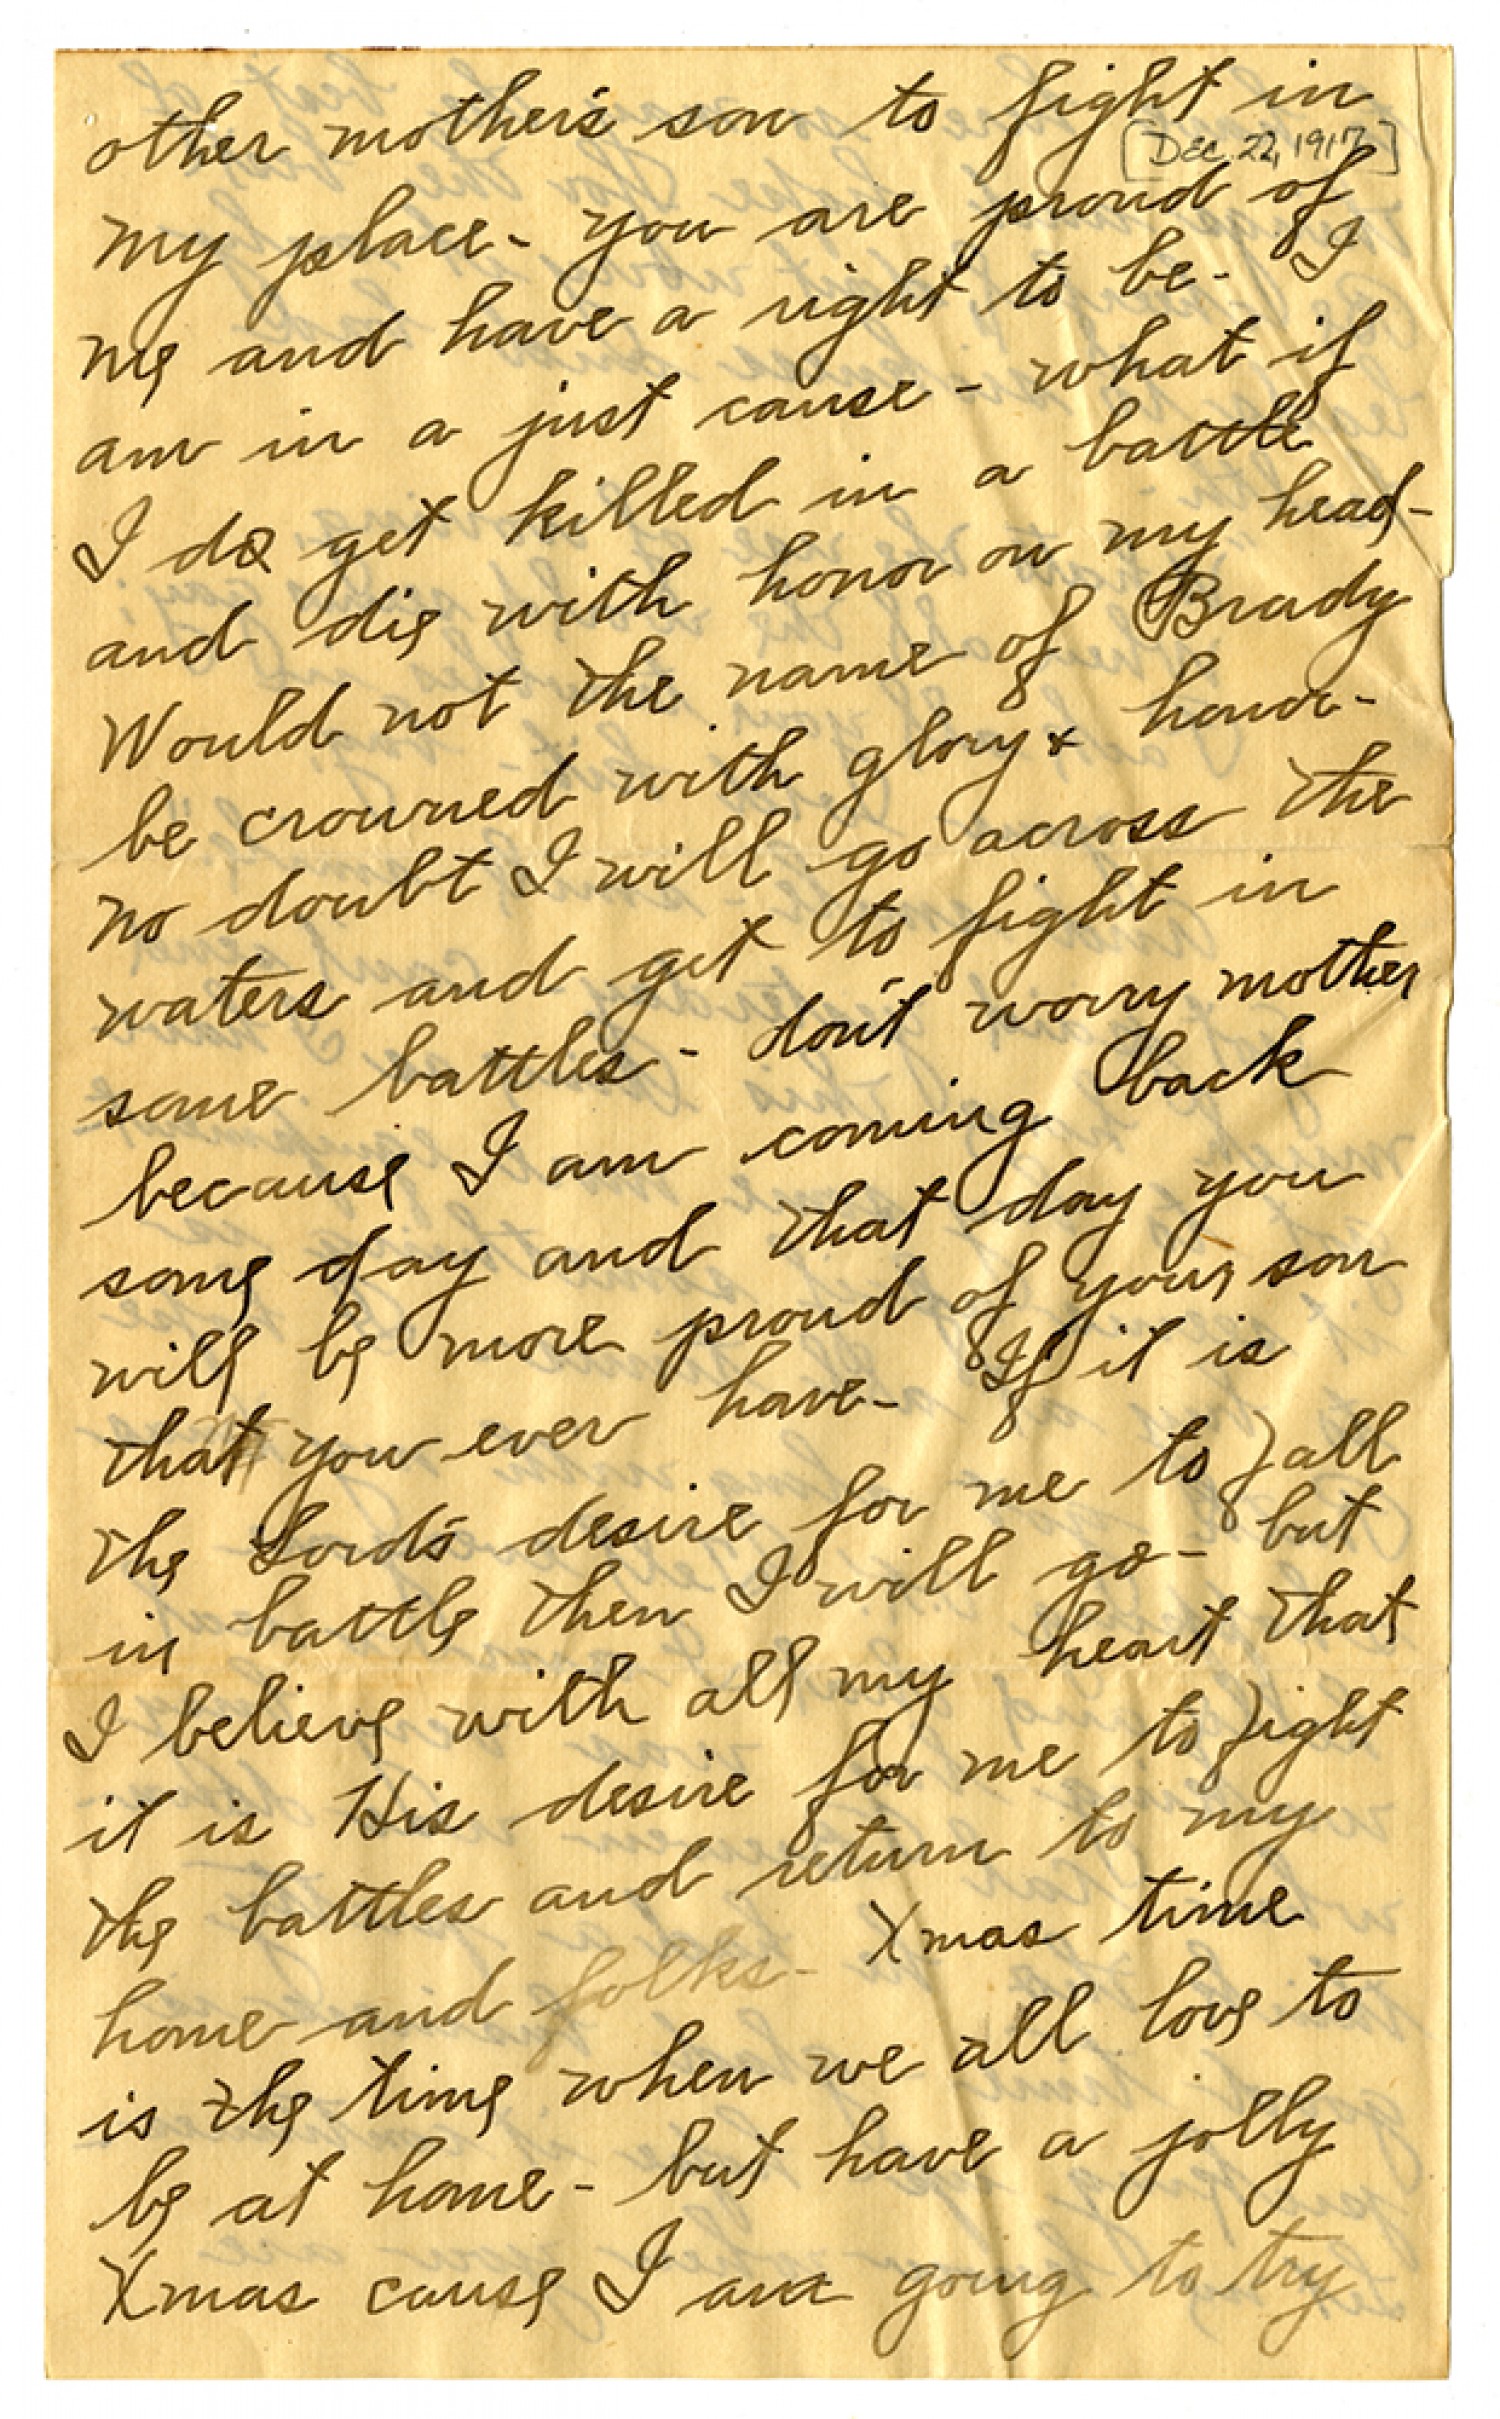 other mother's son to fight in
[DEC. 22, 1917]
my place - you are proud of
me and have a right to be - I
am in a just cause - what if
I do get killed in a battle
and die with honor on my head -
Would not the name of Brady
be crowned with glory & honor -
no doubt I will go across the
waters and get to fight in
some battles - don't worry mother
because I am coming back
some day and that day you
will be more proud of your son
that you ever have - If it is
the Lord's desire for me to fall
in battle then I will go - but
I believe with all my heart that
it is His desire for me to fight
the battles and return to my
home and folks - Xmas time
is the time when we all love to
be at home - but have a jolly
Xmas cause I am going to try